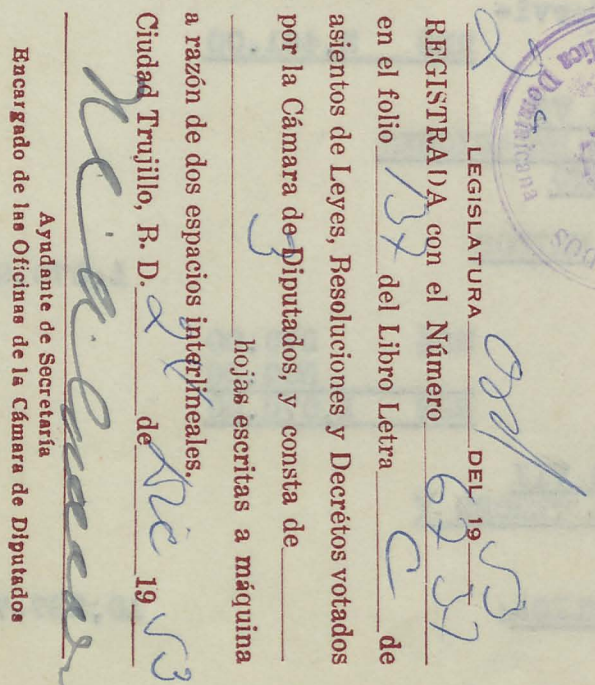 2ª LEGISLATURA Ord DEL 1953
REGISTRADA con el Número 6737
en el folio 137 del Libro Letra C de
asientos de Leyes, Resoluciones y Decretos votados
por la Cámara de Diputados, y consta de
3 hojas escritas a máquina
a razón de dos espacios interlineales.
Ciudad Trujillo, R. D. de Dic 1953
Ayudante de Secretaría
Encargado de las Oficinas de la Cámara de Diputados
Dominicana